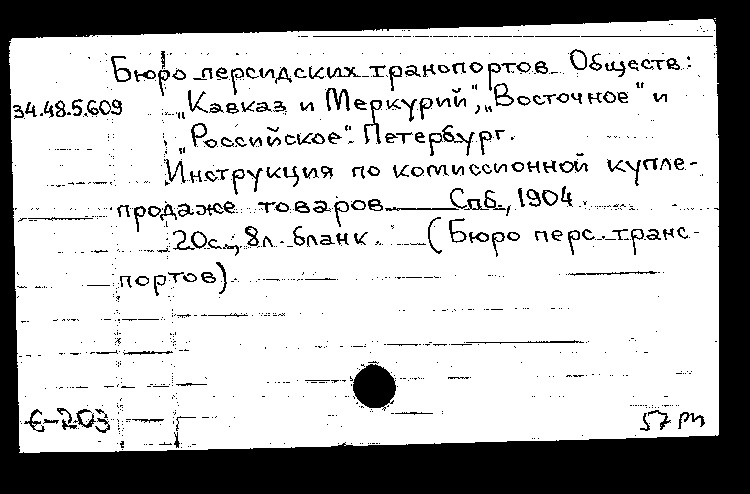 Бюро персидских транспортов Обществ:
34.48.5.609 „Кавказ и Меркурий", „Восточное" и
„Российское". Петербург.
Инструкция по комиссионной купле-
продаже товаров. Спб., 1904.
20с., 8л. бланк. (Бюро перс. транс-
портов).
6-203 57 рп